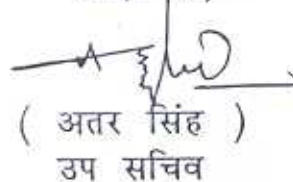 ( अतर सिंह )
उप सचिव